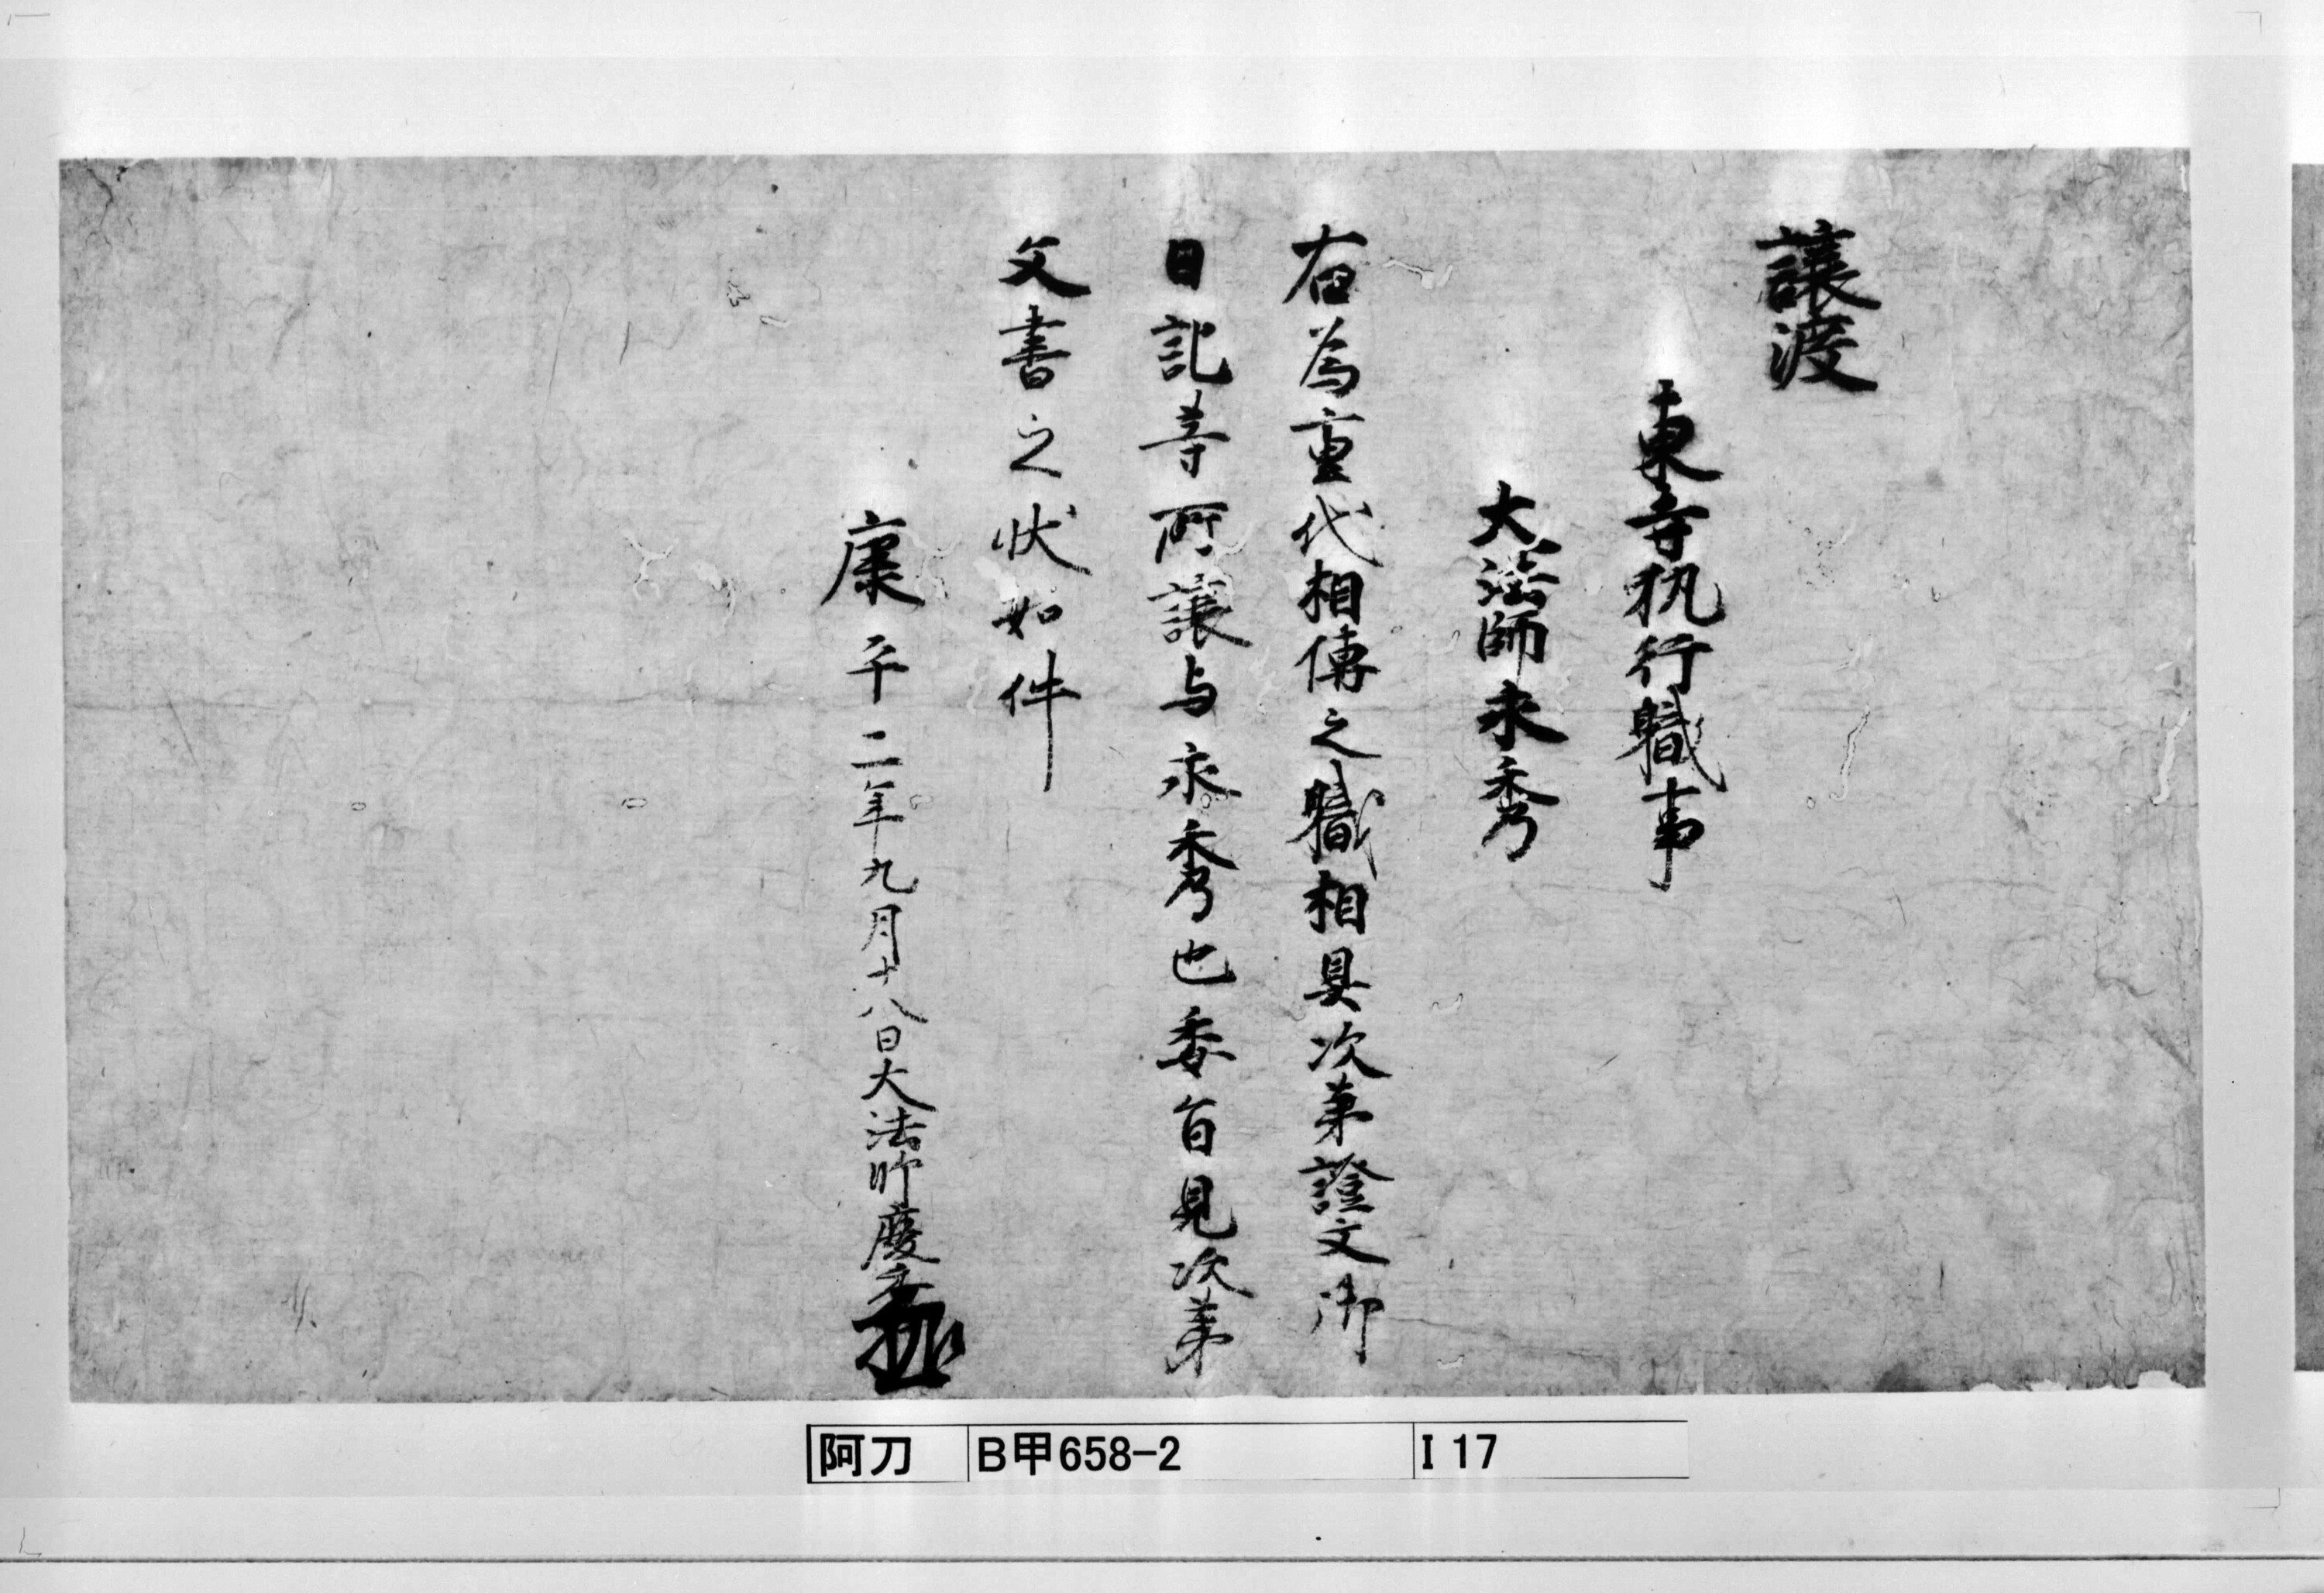 譲渡
東寺執行職事
大法師永秀
右為重代相傳之職相具次第證文御
日記等所譲与永秀也委旨見次第
文書之状如件
康平二年九月十八日大法師慶
阿刀 B甲658-2 I 17